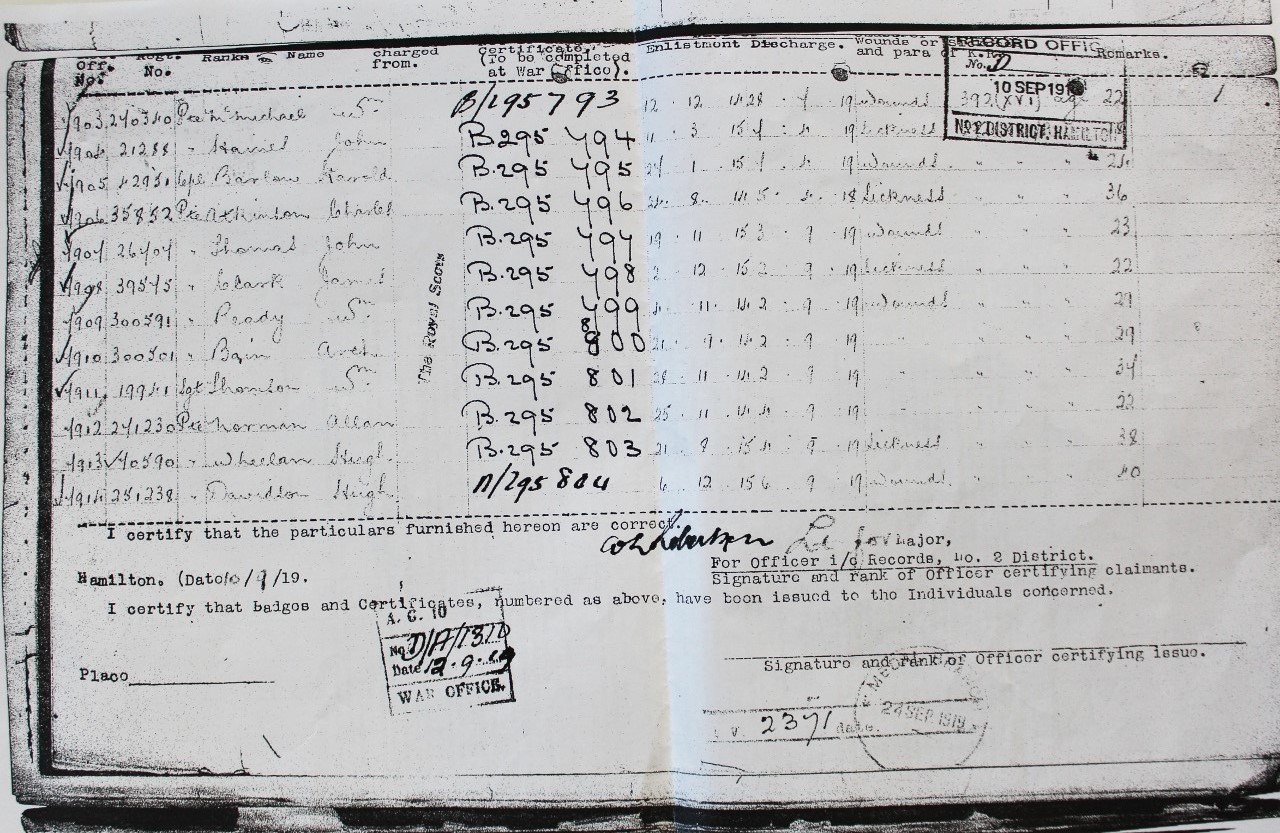 Off. No. Regt. No. Rank Name charged from. Certificate. (To be completed at War Office). Enlistment Discharge. Wounds or and para of K.R. Remarks.
RECORD OFFIC
No. D
10 SEP 191
No 2 DISTRICT, HAMILTON
1903 240340 Pte McMichael Wm B/295793 12 . 12 9 19 Wounds 392(XVI) age 22
1904 21288 " John B295 794 11 . 3 19 Sickness
1905 Cpl Barlow Harold B.295 795 1 19 Wounds " " " 24
1906 35852 Pte Atkinson Charles B.295 796 8 18 Sickness " " " 36
1907 26404 " Thomas John B.295 797 19 . 11 15 3 . 9 . 19 Wounds " " " 23
1908 39545 " Clark James B.295 798 2 . 12 15 2 . 9 . 19 Sickness " " " 22
1909 300591 " Peady Wm B.295 799 11 . 14 2 . 9 . 19 Wounds " " " 29
1910 300501 " Bain Arch. B.295 800 21 . 9 . 14 2 . 9 . 19 " " " " 29
1911 19941 Sgt Thomson Wm B.295 801 11 . 14 2 . 9 19 " " " " 34
1912 241230 Pte Norman Allan B.295 802 25 . 11 . 14 4 . 9 . 19 " " " " 22
1913 40590 " Whellan Hugh B.295 803 21 . 8 15 4 . 9 . 19 Sickness " " " 38
1914 251238 " Davidson Hugh B/295804 6 12 15 6 . 9 . 19 Wounds " " " 40
The Royal Scots
I certify that the particulars furnished hereon are correct.
Robertson Lt for Major,
For Officer i/c Records, No. 2 District.
Hamilton. (Date 10/9/19.
Signature and rank of Officer certifying claimants.
I certify that Badges and Certificates, numbered as above, have been issued to the Individuals concerned.
A. G. 10
No D/A/1310
Date 12.9.19
WAR OFFICE.
Place
Signature and rank of Officer certifying issue.
24 SEP 1919
V. 2371 date.